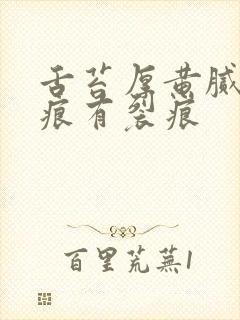 舌苔厚黄腻
痕有裂痕
百里荒芜1